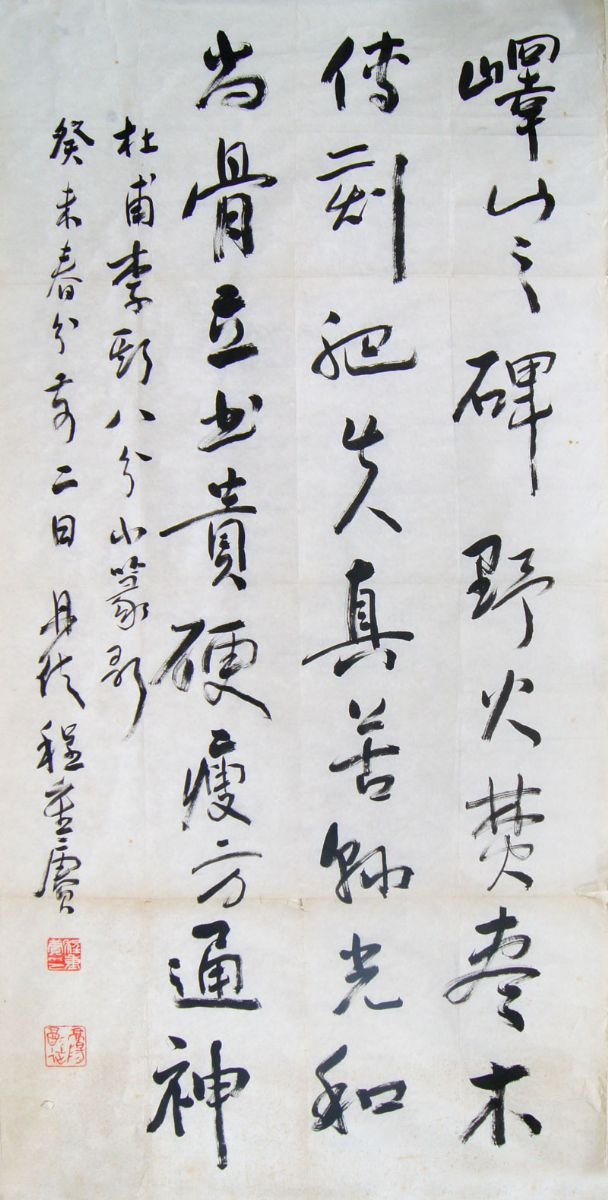 嶧山之碑野火焚枣木
傳刻肥失真苦縣光和
尚骨立书貴硬瘦方通神
杜甫李潮八分小篆歌
癸未春分前二日 丹徒程重